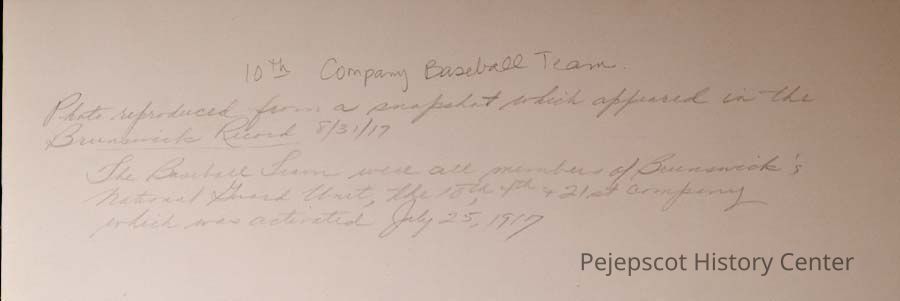 10th Company Baseball Team.
Photo reproduced from a snapshot which appeared in the
Brunswick Record 8/31/17
The Baseball Team were all members of Brunswick's
National Guard Unit, the 10th, 4th + 21st Company
which was activated July 25, 1917
Pejepscot History Center